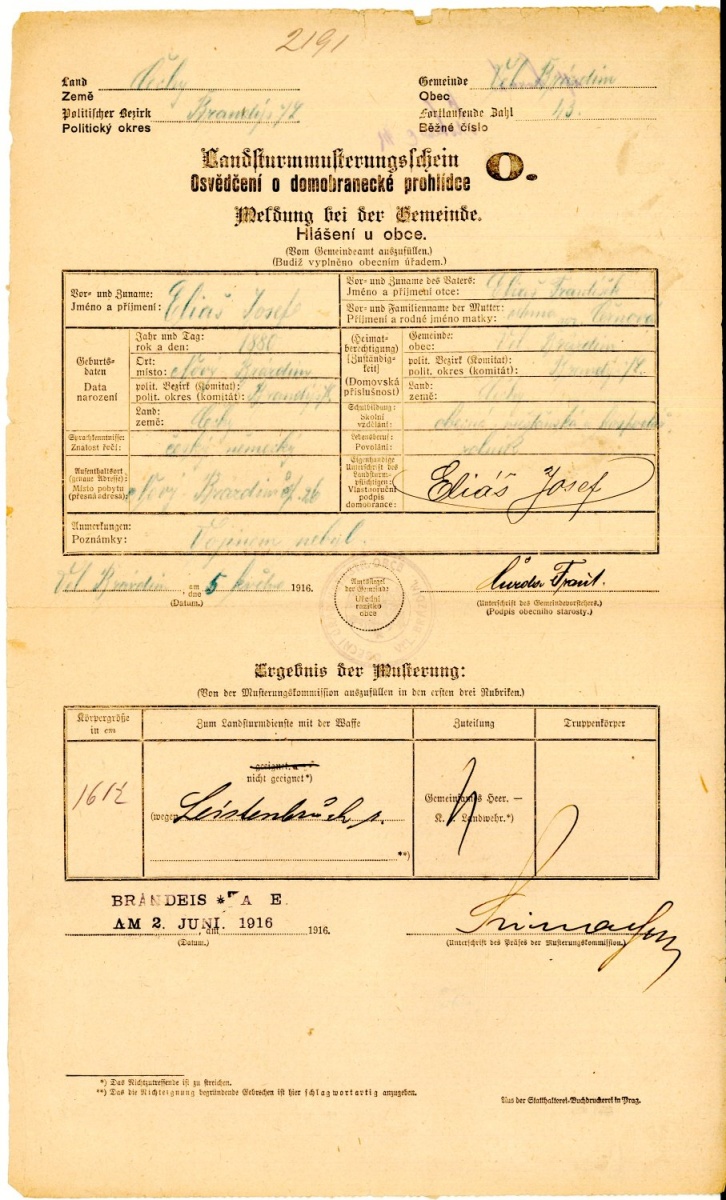 2191
Land Čechy Gemeinde Vel. Brázdim
Země Obec
Politischer Bezirk Brandýs n/L Fortlaufende Zahl 43.
Politický okres Běžné číslo
Landsturmmusterungsschein O.
Osvědčení o domobranecké prohlídce
Meldung bei der Gemeinde.
Hlášení u obce.
(Vom Gemeindeamt auszufüllen.)
(Budiž vyplněno obecním úřadem.)
Vor- und Zuname:
Jméno a příjmení: Eliáš Josef
Vor- und Zuname des Vaters:
Jméno a příjmení otce: Eliáš František
Vor- und Familienname der Mutter:
Příjmení a rodné jméno matky:
Geburts-
daten
Data
narození
Jahr und Tag:
rok a den: 1880
Ort:
místo: Nový Brázdim
polit. Bezirk (Komitat):
polit. okres (komitát): Brandýs n/L
Land:
země: Čechy
(Heimat-
berechtigung)
(Zuständig-
keit)
(Domovská
příslušnost)
Gemeinde:
obec: Vel. Brázdim
polit. Bezirk (Komitat):
polit. okres (komitát): Brandýs n/L
Land:
země: Čechy
Schulbildung:
Školní
vzdělání: obecná
Sprachkenntnisse:
Znalost řečí: český německý
Lebensberuf:
Povolání: rolník
Aufenthaltsort
(genaue Adresse):
Místo pobytu
(přesná adresa): Nový Brázdim čp. 26
Eigenhändige
Unterschrift des
Landsturm-
pflichtigen:
Vlastnoruční
podpis
domobrance: Eliáš Josef
Anmerkungen:
Poznámky: Vojínem nebyl.
Vel. Brázdim am
dne 5 května 1916.
(Datum.)
Amtssiegel
der Gemeinde
Úřední
razítko
obce
(Unterschrift des Gemeindevorstehers.)
(Podpis obecního starosty.)
Ergebnis der Musterung:
(Von der Musterungskommission auszufüllen in den ersten drei Rubriken.)
Körpergröße
in cm
Zum Landsturmdienste mit der Waffe
Zuteilung
Truppenkörper
161½
geeignet
nicht geeignet*)
(wegen Leistenbruch
**)
Gemeinsames Heer. —
K. k. Landwehr.*)
BRANDEIS * A E.
AM 2. JUNI. 1916
am 1916.
(Datum.)
(Unterschrift des Präses der Musterungskommission.)
*) Das Nichtzutreffende ist zu streichen.
**) Das die Nichteignung begründende Gebrechen ist hier schlagwortartig anzugeben.
Aus der Statthalterei-Buchdruckerei in Prag.